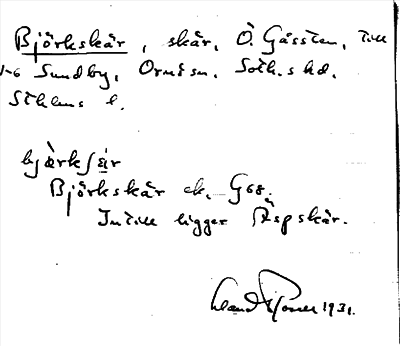 Björkskär, skär, Ö. Gåssten, till
1-6 Sundby, Ornö sn. Soth. s hd.
Sthlms l.
bjærkʃær
Björkskär ek. G68.
Intill ligger Äspskär.
1931.